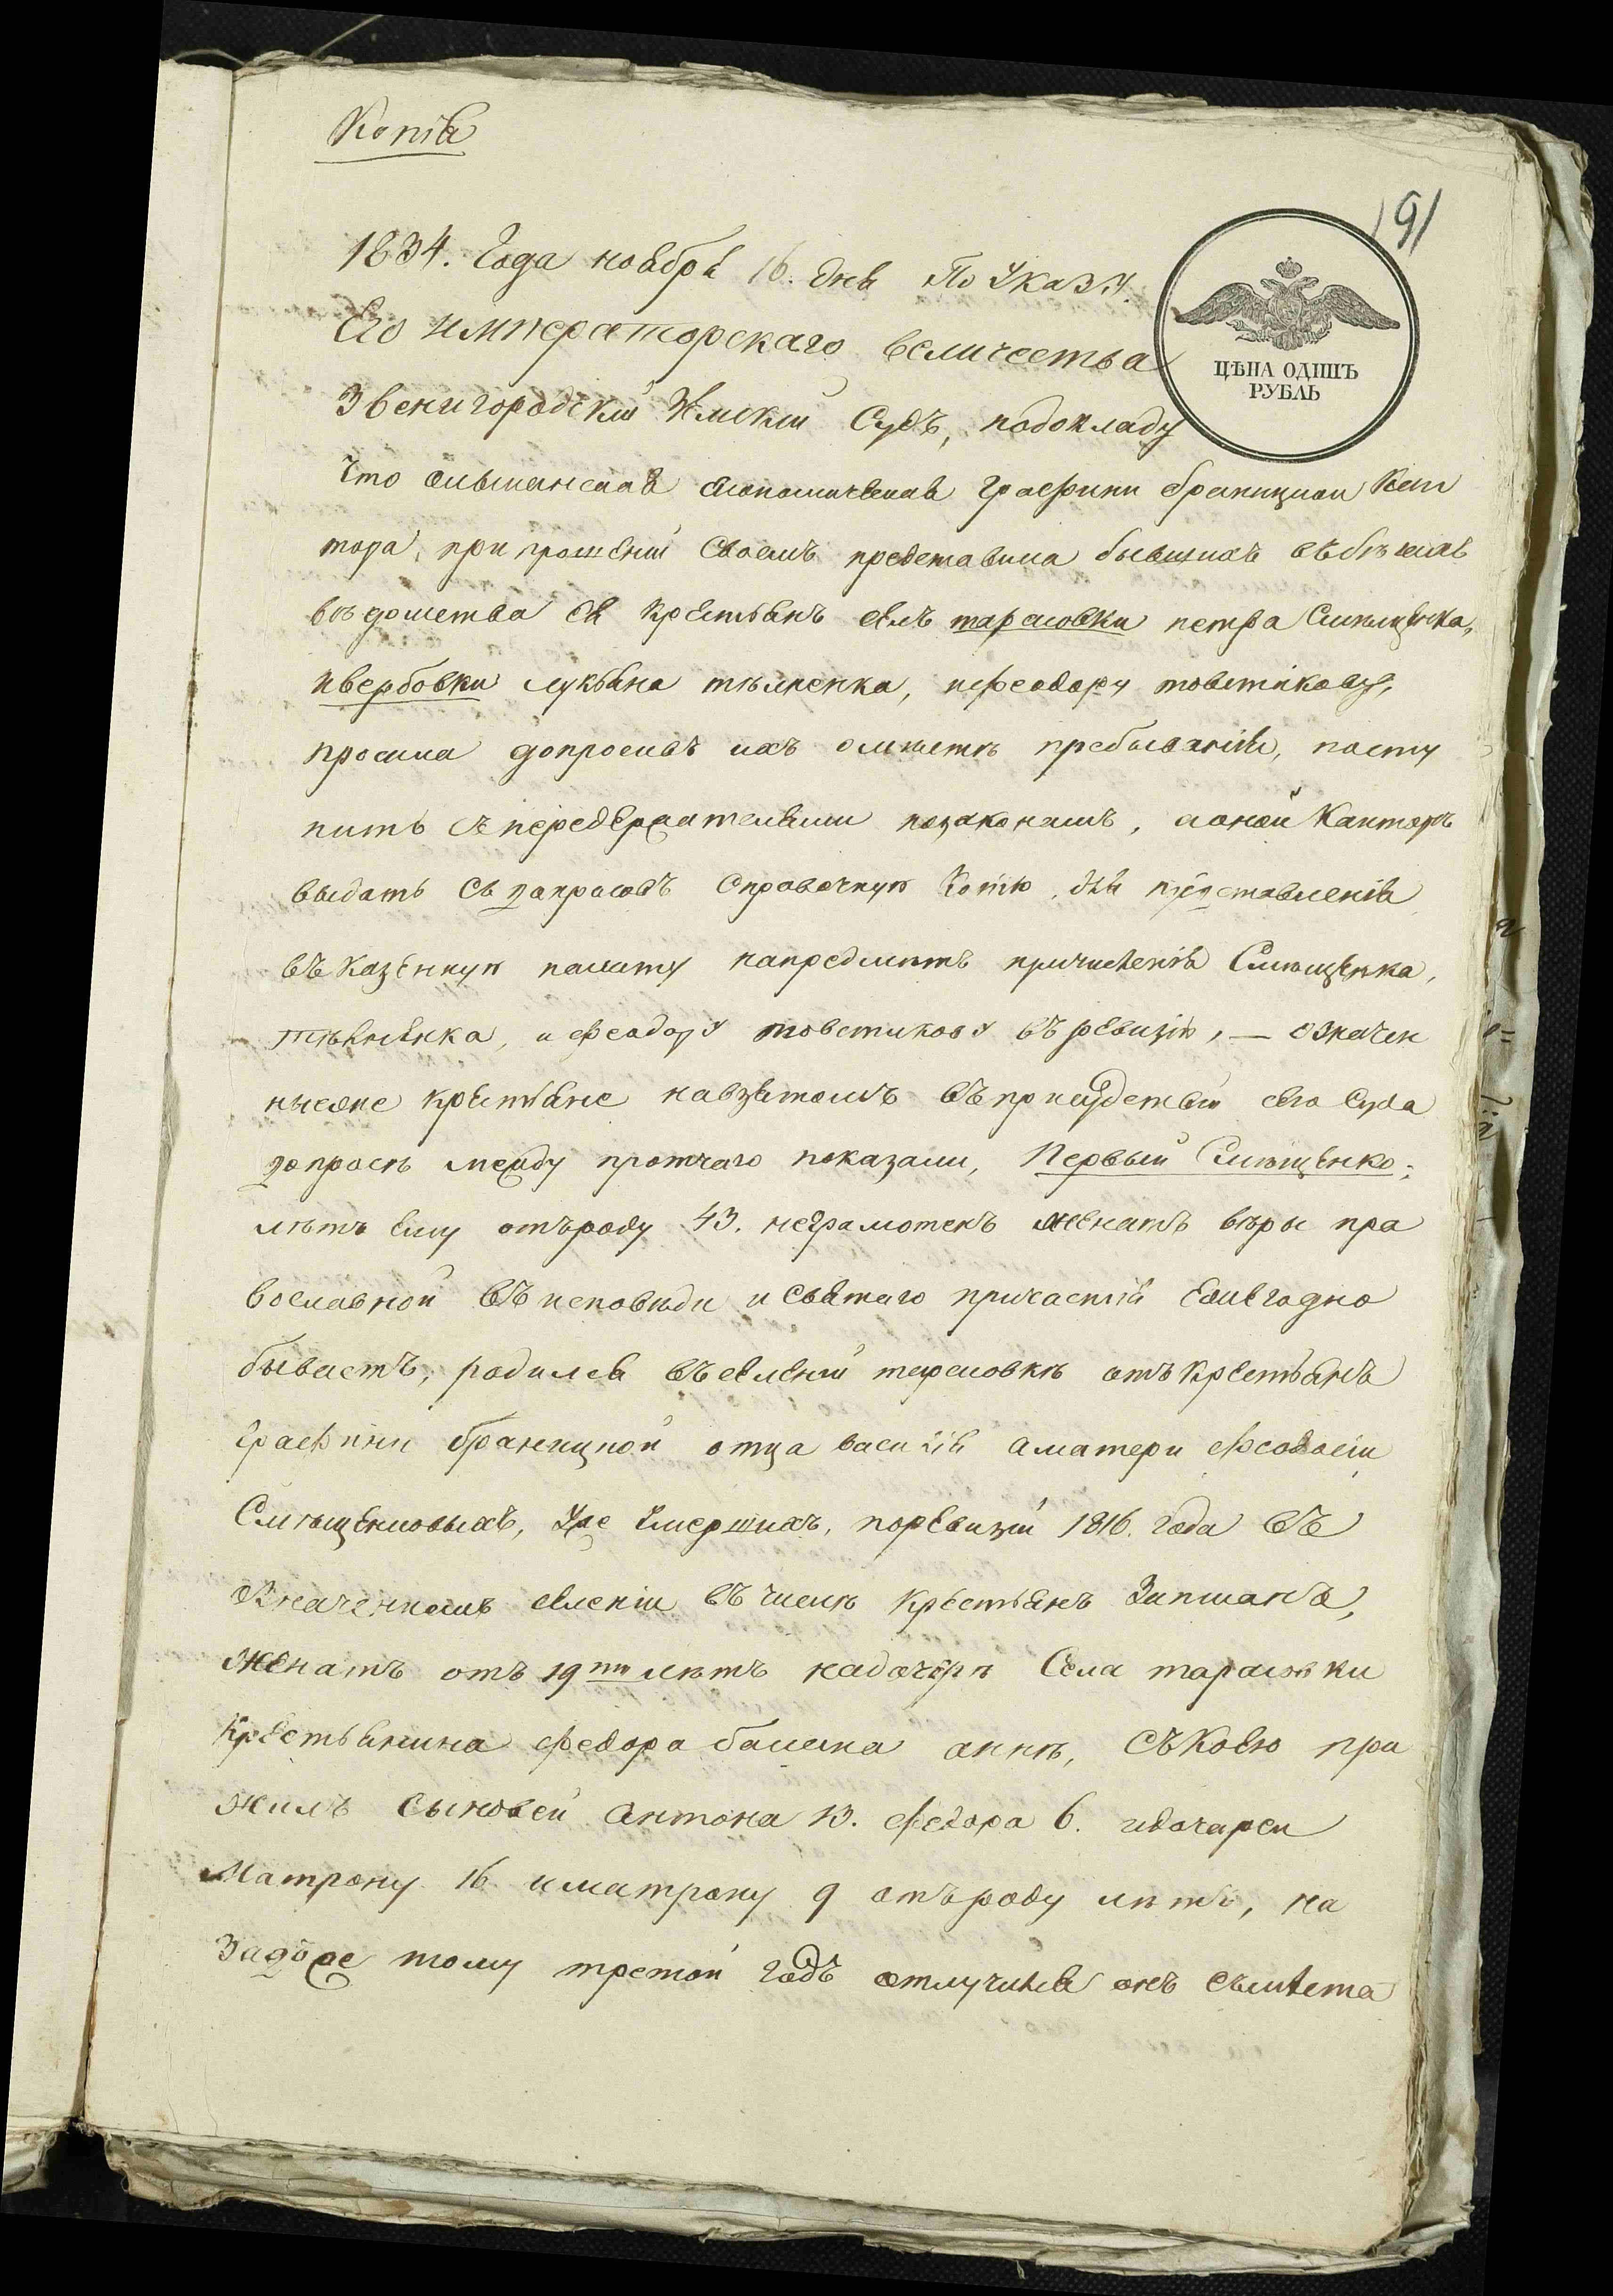 Копія
191
1834. Года ноября 16. дня По Указу
Его императорскаго величества
ЦѢНА ОДИНЪ
РУБЛЬ
Звенигородскій Земскій Судъ, подокладу
Что ольшанская Экономическая Графини браницкой Кан
тора, при прошеніи своемъ представила бывшихъ въ бѣгахъ
вѣдомства Ея Крестьянъ селъ тарасовки петра Смѣщенка,
ивербовки лукьяна, ифеодору товстикову,
просила допросивъ ихъ омѣстѣ пребыванія, посту
пить съ передержателями позаконамъ, аоной Канторѣ
выдать съ допросовъ Справочную Копію, для представленія
въ Казенную палату напредмѣтъ причисленія Смѣщенка,
и феодору товстикову въ ревизію, — означен
ные крестьяне навзятомъ въ присудствіи сего Суда
допросѣ между протчаго показали, Первый Смѣщенко:
лѣтъ Ему отъроду 43. неграмотенъ женатъ вѣры пра
вославной въ исповѣди и святаго причастія Ежегодно
бываетъ, родился въ селеніи тарасовкѣ отъ Крестьянъ
Графини браницкой отца василія аматери феодосіи
Смѣщенковыхъ, уже умершихъ, поревизіи 1816. года въ
Означенномъ селеніи въ числѣ Крестьянъ Записанъ,
Женатъ отъ 19ти лѣтъ надочерѣ Села тарасовки
Крестьянина федора аннѣ, съ Коею при
жилъ сыновей антона 13. федора 6. идочерей
Матрону 16 иматрону 9 отъроду лѣтъ, на
задъ тому третій годъ отлучился онъ съмѣста